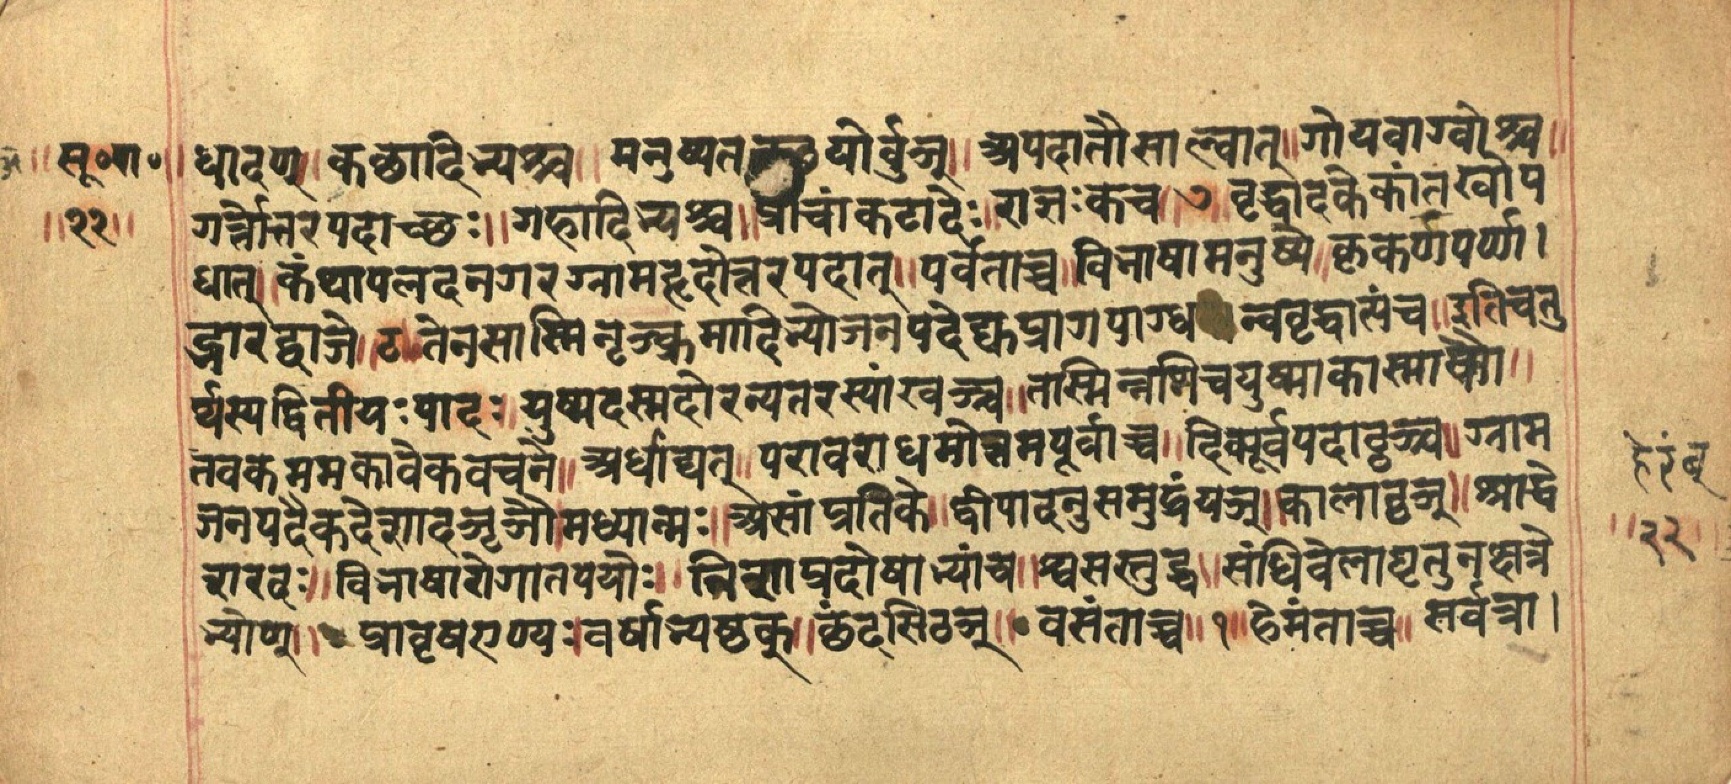 सू॰पा॰
२२
धादण्॥ कच्छादिभ्यश्च॥ मनुष्यतत्स्थयोर्वुञ्॥ अपदातौसाल्वात्॥ गोयवाग्वोश्च॥
गर्त्तोत्तरपदाच्छः॥ गहादिभ्यश्च॥ प्राचांकटादेः॥ राज्ञःकच॥ ७ वृद्धादकेकांतखोप
धात्॥ कंथापलदनगरग्रामह्रदोत्तरपदात्॥ पर्वताच्च॥ विभाषामनुष्ये॥ कृकर्णपर्णा।
द्भारद्वाजे॥ ८॥ तेनसास्मिनृञ्क्रमादिभ्योजनपदेद्युप्रागपाग्धन्ववृद्धात्संच॥ इतिचतु
र्थस्यद्वितीयःपादः॥ युष्मदस्मदोरन्यतरस्यांखञ्च॥ तस्मिन्नणिचयुष्माकास्माकौ॥
तवकममकावेकवचने॥ अर्धाद्यत्॥ परावराधमोत्तमपूर्वाच्च॥ दिक्पूर्वपदाठ्ठञ्च॥ ग्राम
जनपदैकदेशादञ्ठञौ॥ मध्यान्मः॥ असांप्रतिके॥ द्वीपादनुसमुद्रंयञ्॥ कालाठ्ठञ्॥ श्राद्धे
शरदः॥ विभाषारोगातपयोः॥ निशाप्रदोषाभ्यांच॥ श्वसस्तुट्च॥ संधिवेलाद्यृतुनक्षत्रे
भ्योण्॥ प्रावृषएण्यः॥ वर्षाभ्यष्ठक्॥ छंदसिठञ्॥ वसंताच्च॥ १॥ हेमंताच्च॥ सर्वत्रा।
हेरंब
२२